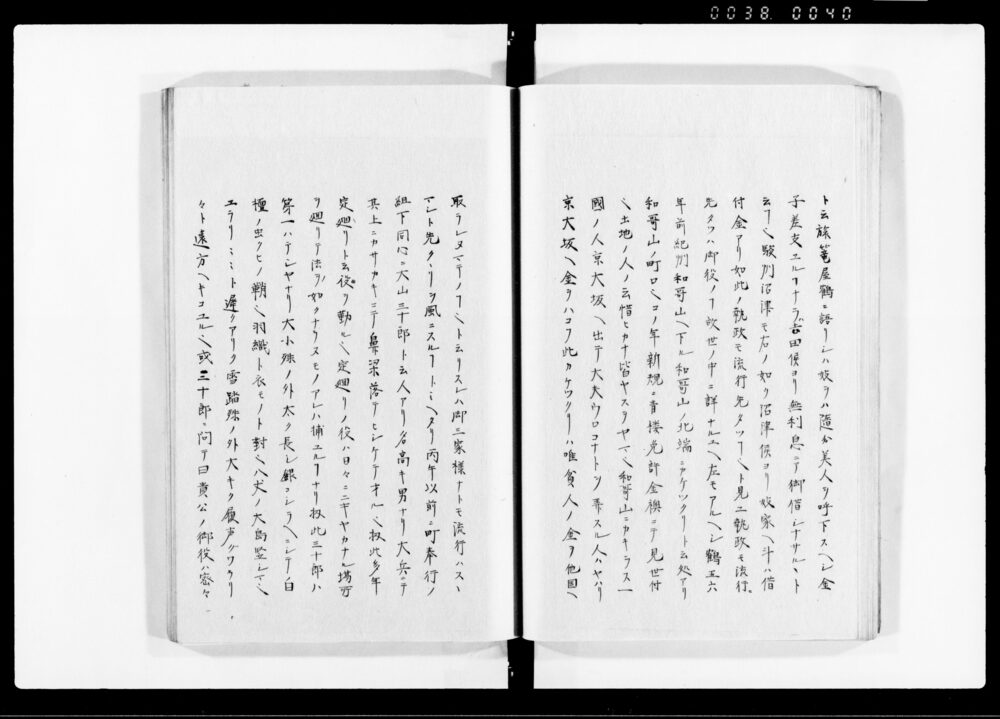 0038 0040
ト云旅篭屋鶴ニ語リシハ妓ヲハ随分美人ヲ呼下スヘシ金
子差支エルヿナラバ吉田侯ヨリ無利息ニテ御借シナサルヽト
云フヿ駿州沼津モ右ノ如ク沼津侯ヨリ妓家ヘ斗ハ借
付金アリ如此ノ執政モ流行先タツヿト見エ執政モ流行
先タツハ御役ノヿ故世ノ中ニ詳ナルユヘ左モアルヘシ鶴五六
年前紀州和哥山ヘ下ル和哥山ノ北端ニカケツクリト云処アリ
和哥山ノ町口ミコノ年新規ニ青楼免許金襖ニテ見世付
ミ土地ノ人ノ云惜ヒカナ皆ヤスヲヤマミ和哥山ニカキラス一
國ノ人京大坂ヘ出テ大夫ウロコナトヲ弄スル人ハヤハリ
京大坂ヘ金ヲハコフ此カケツクリハ唯貧人ノ金ヲ他国ヘ
取ラレヌマテノヿミト云リスレハ御三家様ナトモ流行ハスヽ
マント先クヽリヲ風ニスルヿトミヘタリ丙午以前ニ町奉行ノ
組下同心ニ大山三十郎ト云人アリ名高キ男ナリ大兵ニテ
其上ニカサカキニテ鼻梁落テヒシケテオルミ扨此多年
定廻リト云役ヲ勤ルミ定廻リノ役ハ日々ニニギヤカナル場所
ヲ廻リテ法ノ如クナラヌモノアレハ捕エルヿナリ扨此三十郎ハ
第一ハテシヤナリ大小殊ノ外太ク長シ銀コシラヘニシテ白
檀ノ虫クヒノ鞘ミ羽織ト衣モノト封ミハ丈ノ大島竪シマミ
エラリミミト遅クアリク雪踏殊ノ外大キク履声グワラリ
々ト遠方ヘキコユルミ或三十郎ニ問テ曰貴公ノ御役ハ密々